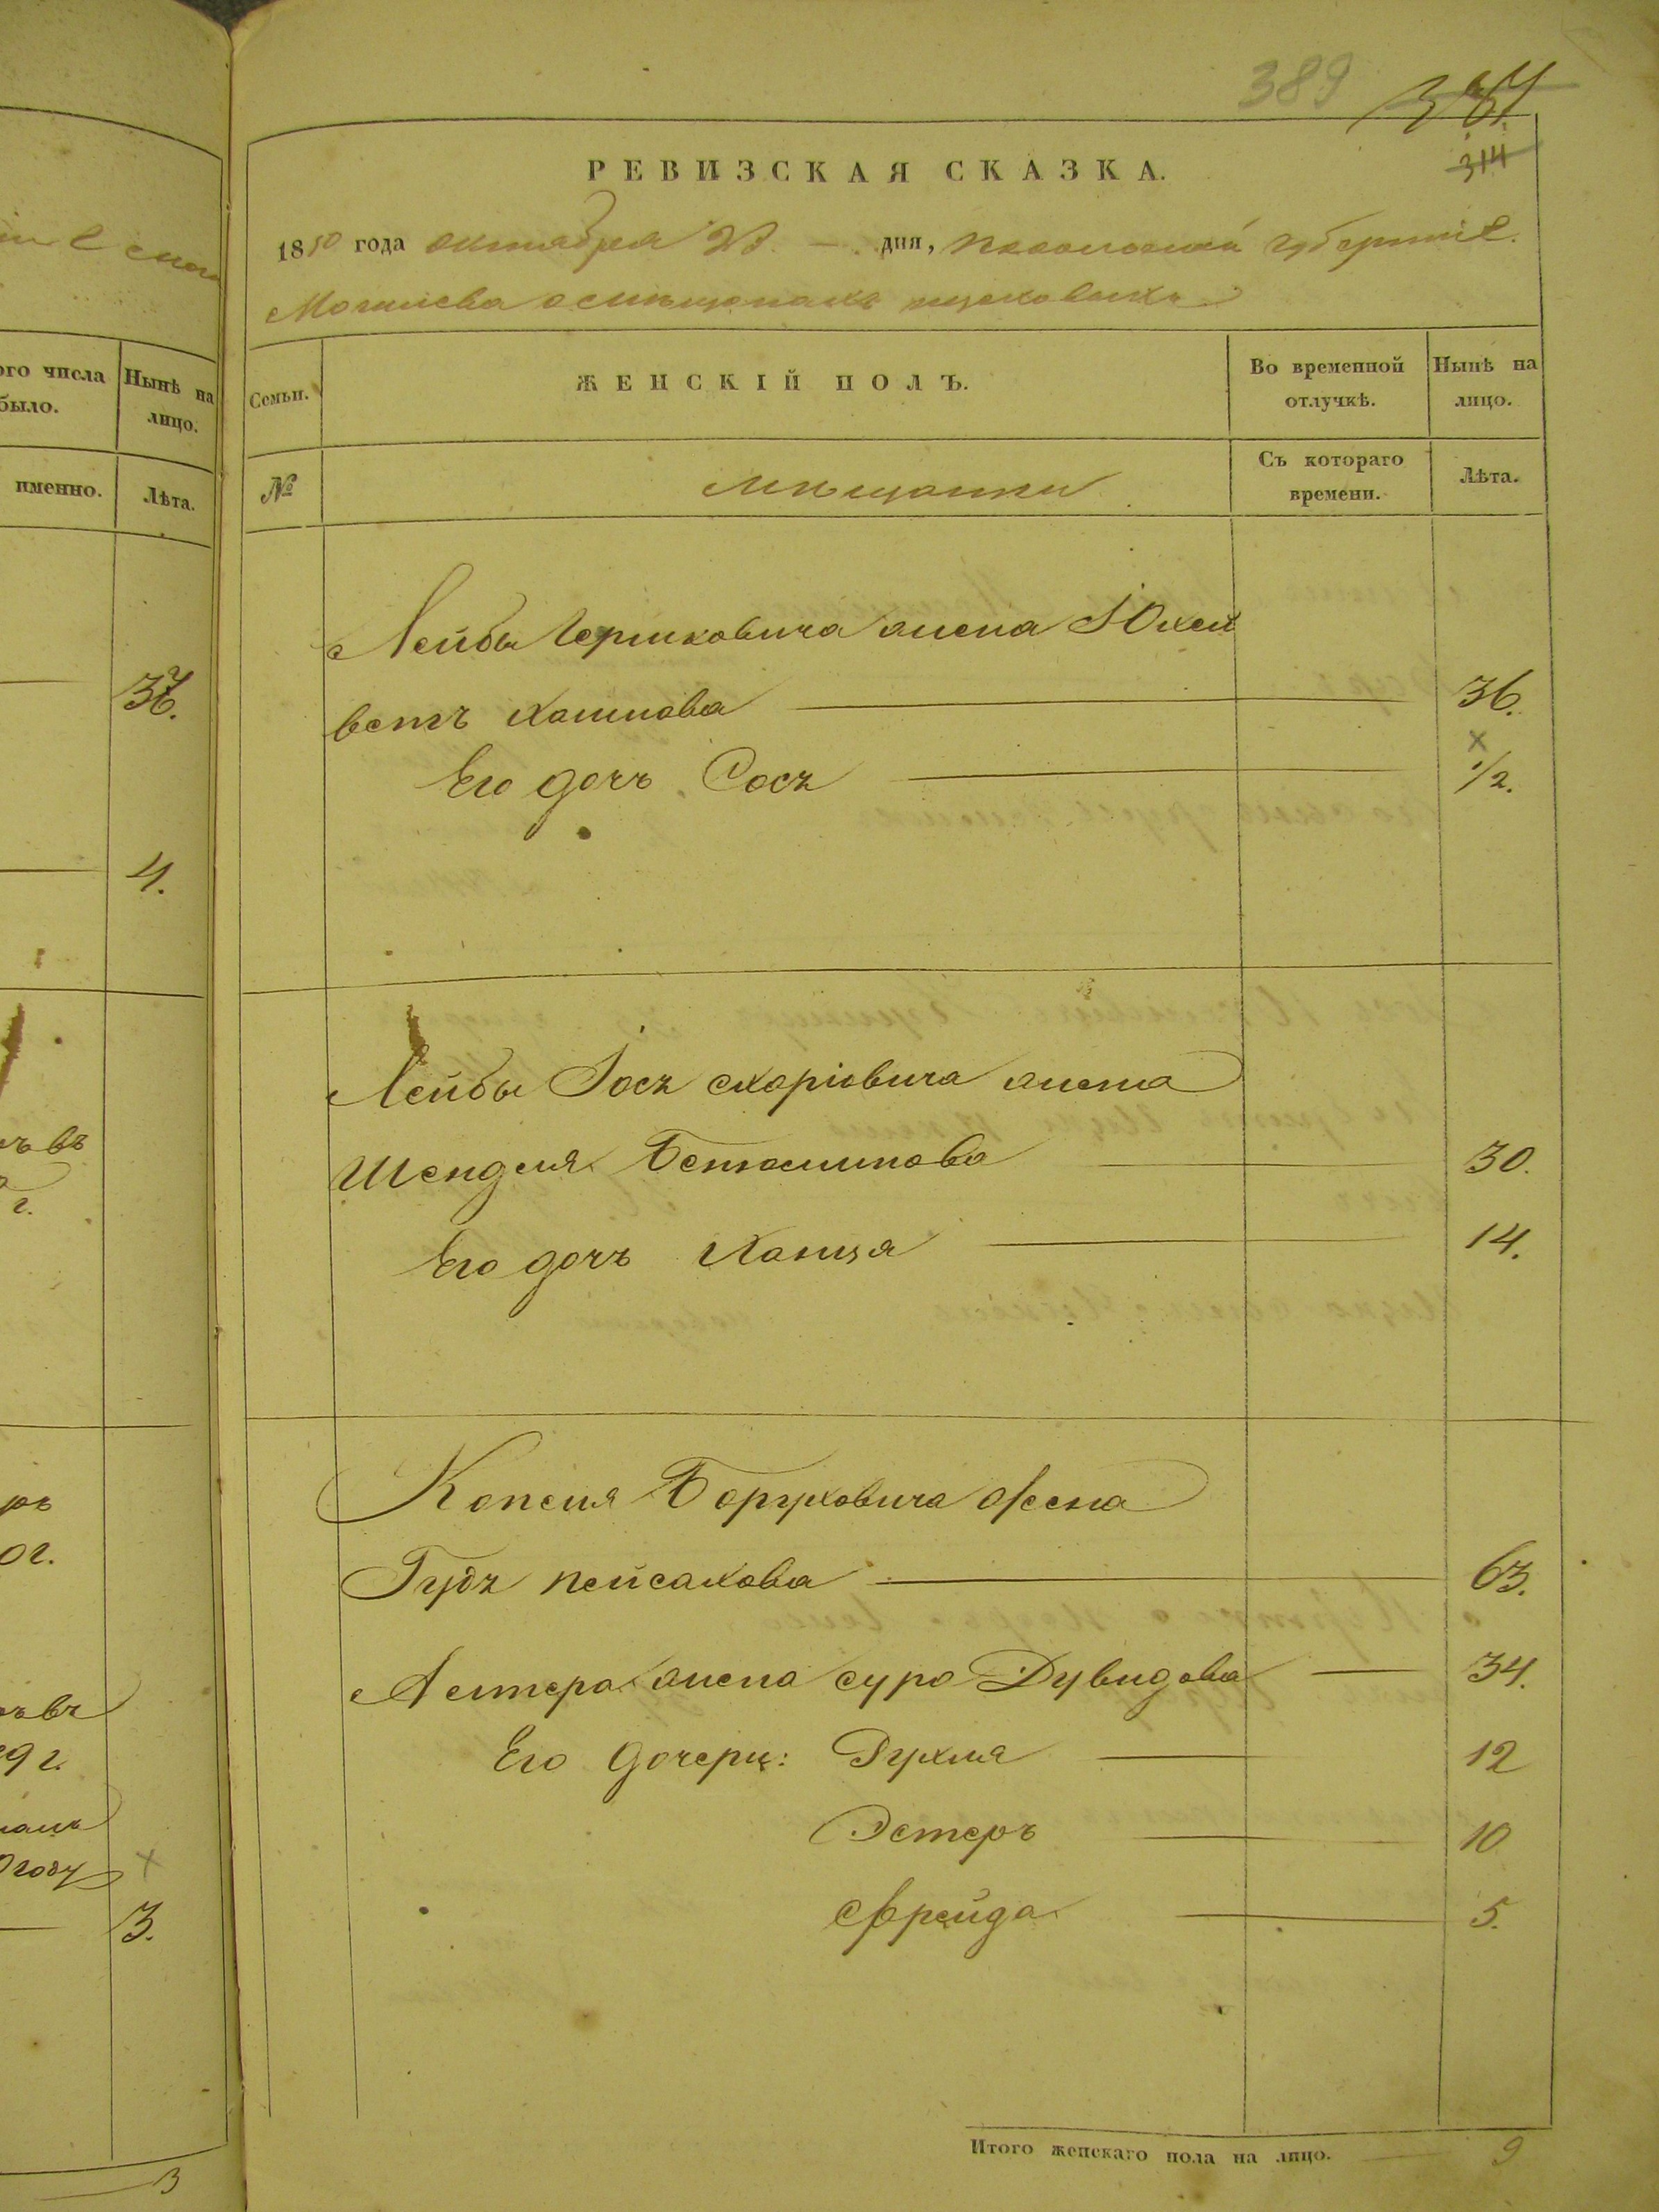 389 387
314
РЕВИЗСКАЯ СКАЗКА.
1850 года октября 23 дня, Подольской губерніи
Могилева о мѣщанахъ
Семьи. ЖЕНСКІЙ ПОЛЪ. Во временной отлучкѣ. Нынѣ на лицо.
№ мѣщанки Съ котораго времени. Лѣта.
Лейбы Гершковича жена Юхед
ветъ Хаимова 36.
Его дочь Сося 1/2.
Лейбы Іось жена
Шендля 30.
Его дочь Ханця 14.
Копеля Боруховича жена
Гудя Пейсахова 63.
жена сура Дувидова 34.
Его дочери: Рухля 12
Эстеръ 10
Фрейда 5.
Итого женскаго пола на лицо. 9
ого числа было. Нынѣ на лицо.
именно. Лѣта.
4.
въ
г.
0г.
9 г.
году
3.
3